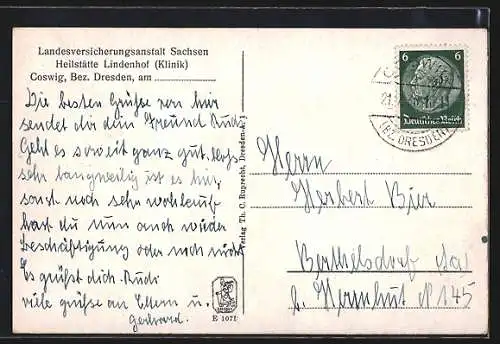 Landesversicherungsanstalt Sachsen
Heilstätte Lindenhof (Klinik)
Coswig, Bez. Dresden, am
Die besten Grüße von hier
sendet dir dein Freund Rudi
Geht es soweit ganz gut, bloß
sehr langweilig ist es hier,
sonst noch sehr wohlauf
hast du nun auch wieder
Beschäftigung oder noch nicht
Es grüßt dich Rudi
viele grüße an Eltern u.
Gerhard.
Verlag Th. C. Ruprecht, Dresden-A. 1
E 1071
6 6
Deutsches Reich
(BZ. DRESDEN)
Herrn
Herbert Bier
Berthelsdorf Sa
b. Herrnhut N 145